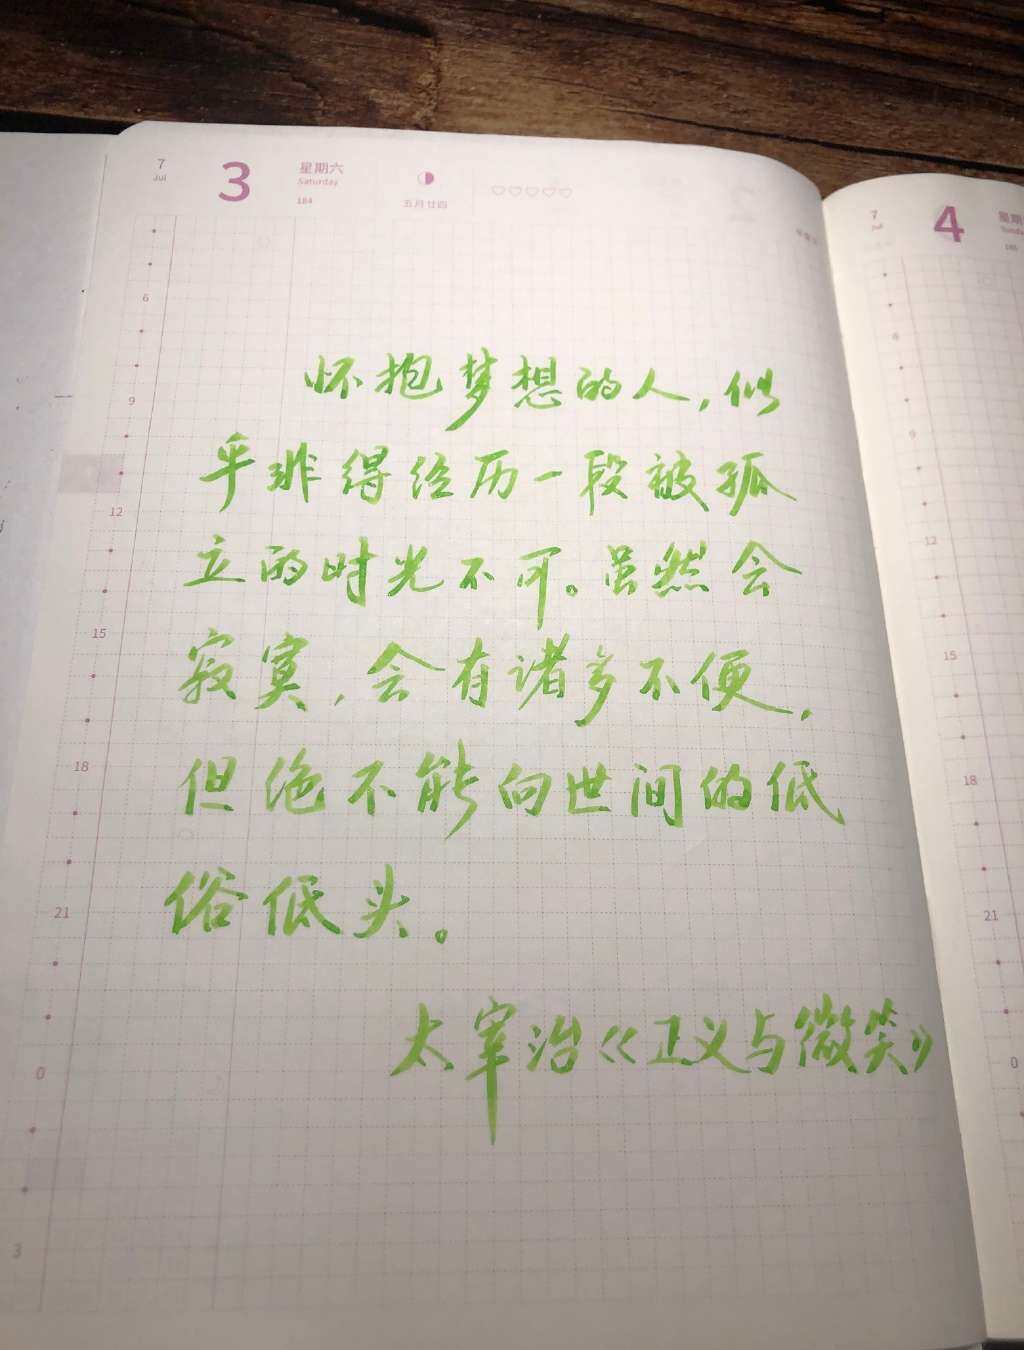 7 Jul 3 星期六 Saturday 184 五月廿四
7 Jul 4
6
9
12
15
18
21
0
3
怀抱梦想的人,似
乎非得经历一段被孤
立的时光不可。虽然会
寂寞,会有诸多不便,
但绝不能向世间的低
俗低头。
太宰治《正义与微笑》
6
9
12
15
18
21
0